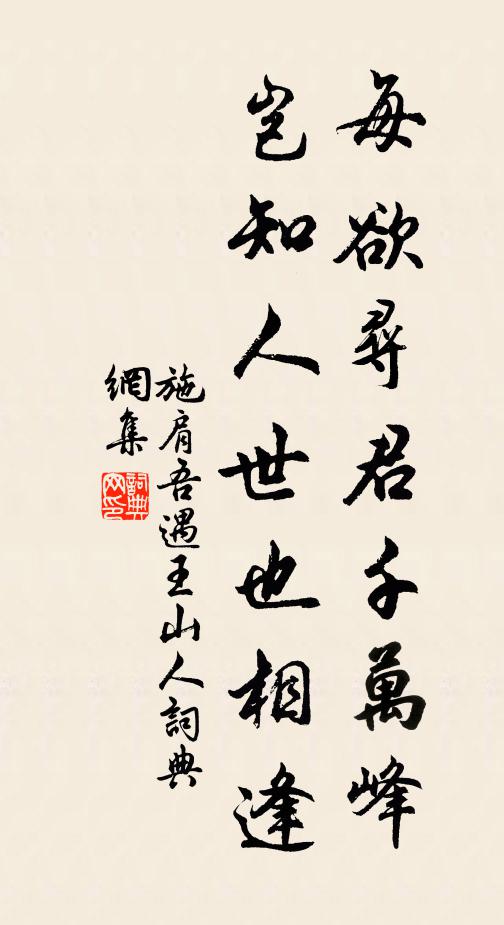 每欲尋君千萬峰
豈知人世也相逢
施肩吾遇王山人詞典
網集
詞典
网印